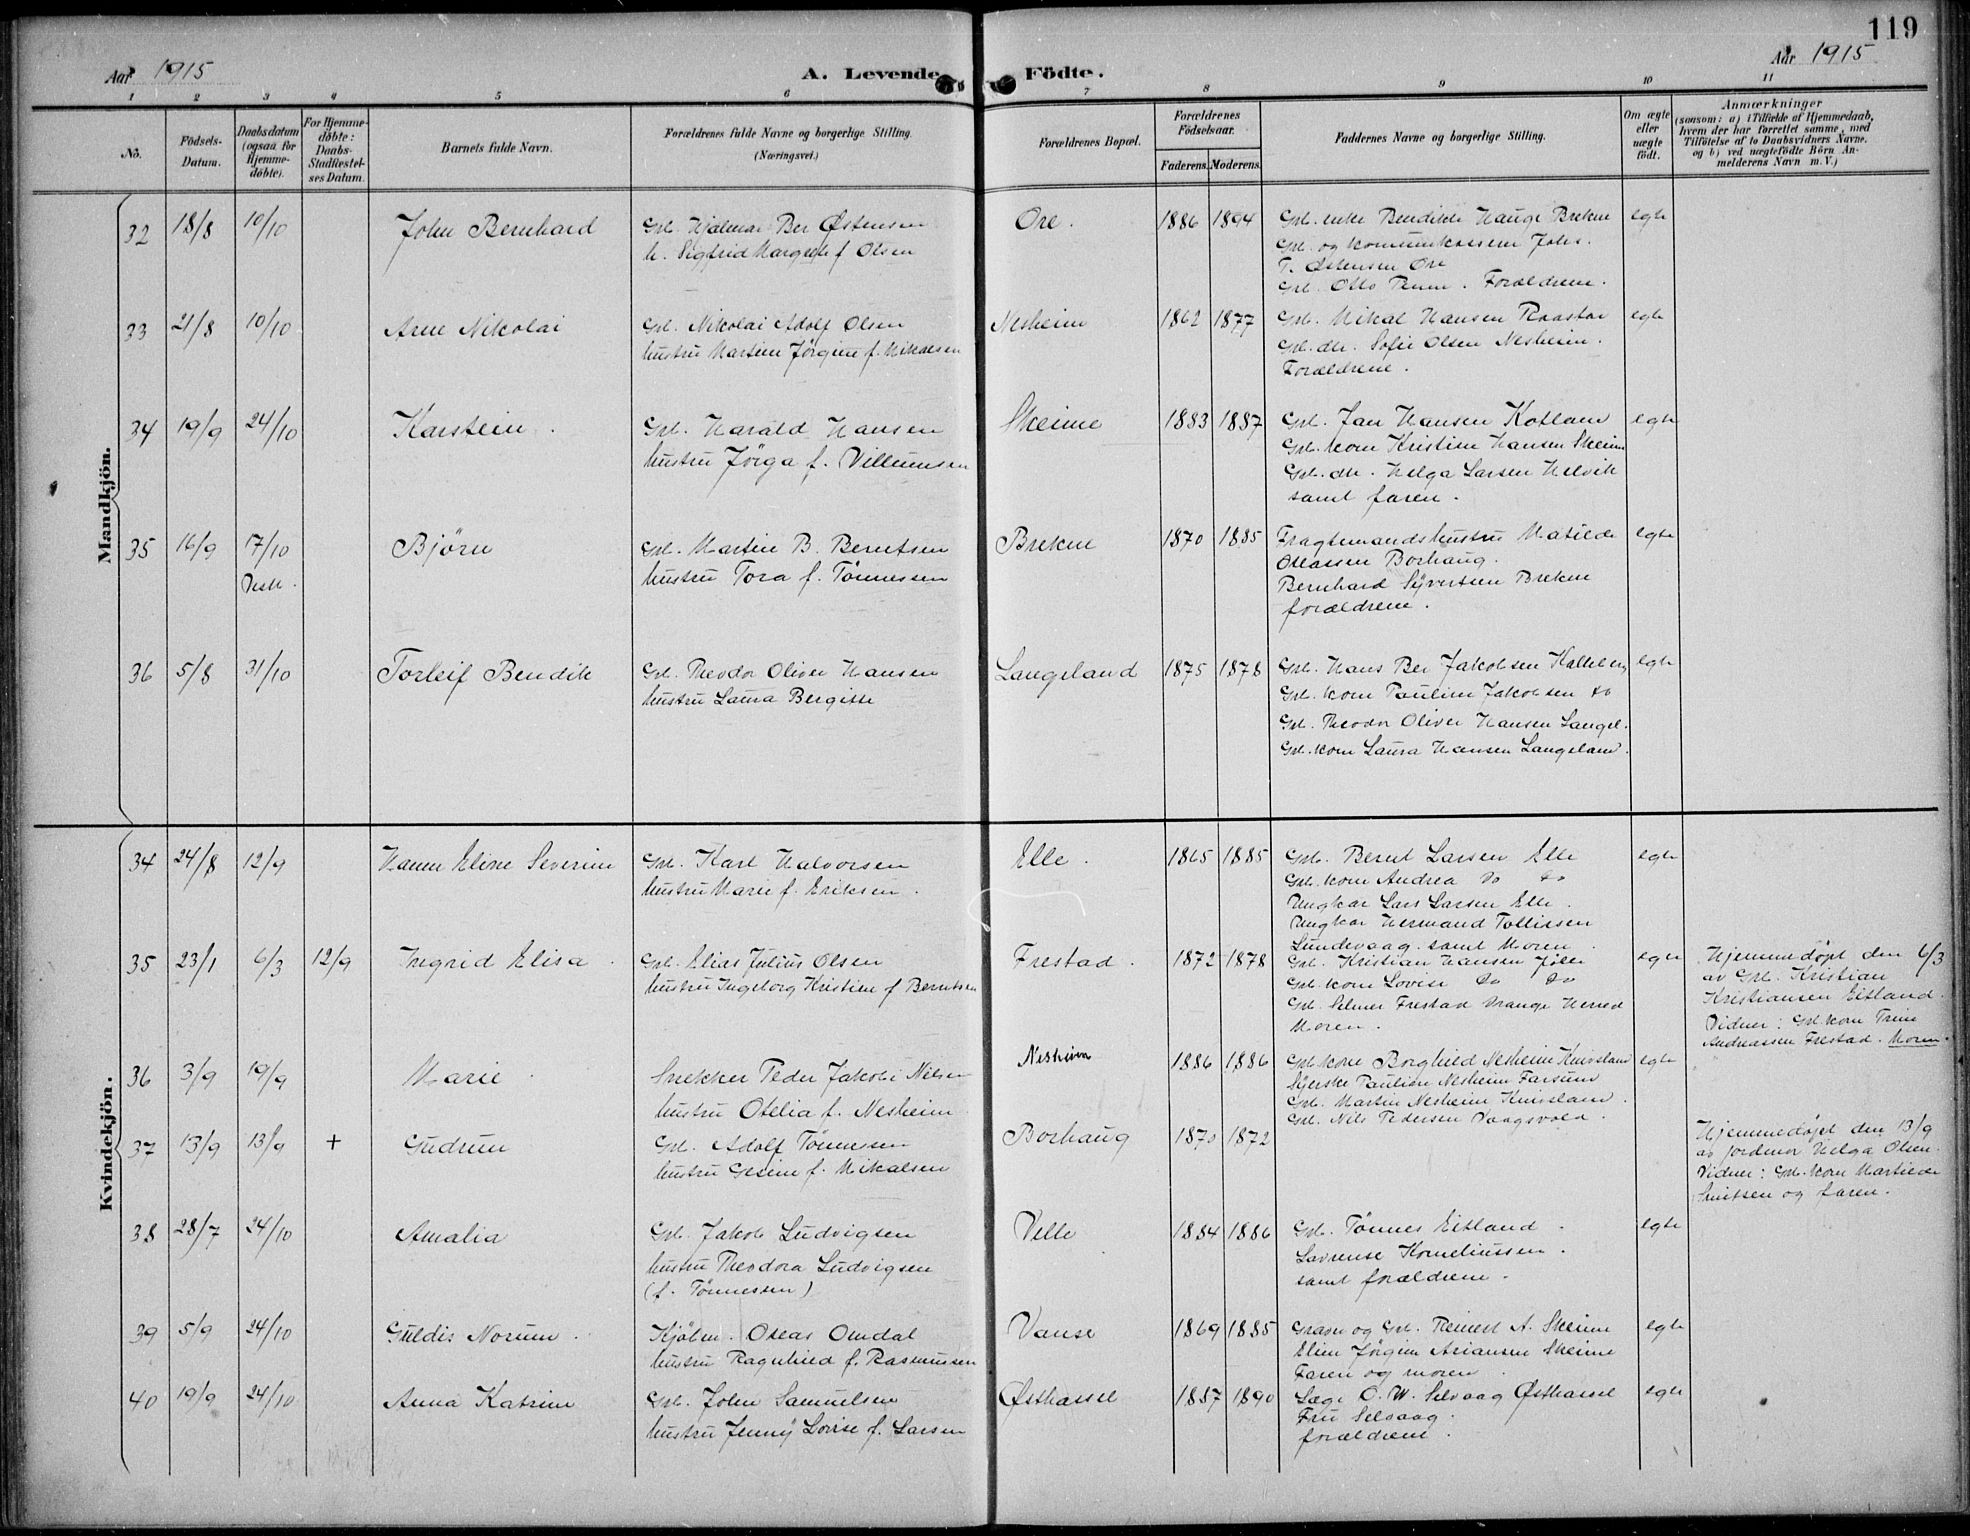 119
Aar 1915
A. Levende Födte.
Aar 1915
1 2 3 4 5 6 7 8 9 10 11
No.
Födsels-Datum.
Daabsdatum (ogsaa for Hjemme-döbte).
For Hjemme-döbte: Daabs-Stadfæstel-ses Datum.
Barnets fulde Navn.
Forældrenes fulde Navne og borgerlige Stilling.
(Næringsvei.)
Forældrenes Bopæl.
Forældrenes Födselsaar.
Faderens. Moderens.
Faddernes Navne og borgerlige Stilling.
Om ægte eller uægte födt.
Anmærkninger
(saasom: a) i Tilfælde af Hjemmedaab,
hvem der har forrettet samme, med
Tilföielse af to Daabsvidners Navne,
og b) ved uægtefödte Börn An-
melderens Navn m. V.)
Mandkjön.
32 18/8 10/10 John Bernhard
Gbr. Hjalmar Ber Østensen
h. Sigfrid Margrete f Olsen
Ore. 1886 1894
Gbr. enke Bendikte Hauge Brekne
Gbr. og komunekasserer Johs.
T. Østensen Ore
Gbr. Otto . Forældrene.
egte
33 21/8 10/10 Arne Nikolai
Gbr. Nikolai Adolf Olsen
hustru Martine Jørgine f. Mikalsen
Nesheim 1862 1877
Gbr. Mikal Hansen Raastad
Gbr. dtr. Sofie Olsen Nesheim.
Forældrene.
egte
34 19/9 24/10 Karstein.
Gbr. Harald Hansen
hustru Jørga f. Villumsen
Skeime 1883 1887
Gbr. Jan Hansen Kotland
Gbr. kone Kristine Hansen Skeime
Gbr. dtr. Helga Larsen Helvik
samt faren.
egte
35 16/9 17/10 Bjørn
Vestb.
Gbr. Martin B. Berntsen
hustru Tora f. Tønnessen
Brekne 1870 1885
Fragtemandshustru Matilde
Olassen Borhaug.
Bernhard Syvertsen Brekne
forældrene.
egte
36 5/8 31/10 Torleif Bendik
Gbr. Theodor Oliver Hansen
hustru Laura Bergitte
Langeland 1875 1878
Gbr. Hans Ber Jakobsen Kalleberg
Gbr. kone Pauline Jakobsen do
Gbr. Theodor Oliver Hansen Langel.
Gbr. kone Laura Hansen Langeland.
egte
Kvindekjön.
34 24/8 12/9 Hanne Eline Severine
Gbr. Karl Halvorsen
hustru Marie f. Eriksen.
Elle. 1865 1885
Gbr. Bernt Larsen Elle
Gbr. kone Andrea do do
Ungkar Lars Larsen Elle.
Ungkar Hermand Tollissen
Lundevaag. samt Moren.
egte
35 23/1 6/3 12/9 Ingrid Elisa.
Gbr. Elias Julius Olsen
hustru Ingeborg Kristine f Berntsen
Frestad. 1872 1878
Gbr. Kristian Hansen Jølle
Gbr. kone Lovise do do
Gbr. Selmer Frestad Vrange Herred
Moren.
egte
Hjemmedøpt den 6/3
av Gbr. Kristian
Kristiansen Eitland.
Vidner: Gbr. kone Trine
Andreassen Frestad. Moren.
36 3/9 19/9 Marie
Snekker Peder Jakobi Nilsen
hustru Otelia f. Nesheim
Nesheim 1886 1886
Gbr. kone Borghild Nesheim Knivsland
Syerske Pauline Nesheim Farsund
Gbr. Martin Nesheim Knivsland.
Gbr. Nils Pedersen Vaagsvold.
egte
37 13/9 13/9 + Gudrun
Gbr. Adolf Tønnessen
hustru Gesine f. Mikalsen
Borhaug 1870 1872
Hjemmedøpt den 13/9
av jordmor Helga Olsen.
Vidner: Gbr. kone Martilde
Knutsen og faren.
38 28/7 24/10 Amalia
Gbr. Jakob Ludvigsen
hustru Theodora Ludvigsen
(f. Tønnessen)
Velle 1884 1886
Gbr. Tønnes Eitland.
Lavrense Korneliussen.
samt forældrene.
egte
39 5/9 24/10 Guldis Norunn.
Kjøbm. Oseas Omdal
hustru Ragnhild f. Rasmussen
Vanse 1869 1885
Graver og Gbr. Reinert A. Skeime
Eline Jørgine Ariansen Skeime
Faren og moren.
egte
40 19/9 24/10 Anna Katrine
Gbr. John Samuelsen
hustru Jenny Lovise f. Larsen
Østhassel 1887 1890
Læge O. W. Selvaag Østhassel
Fru Selvaag.
forældrene.
egte